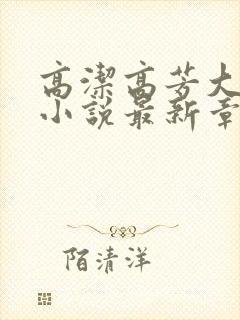 高潔高芳大
小說最新章
陌清洋